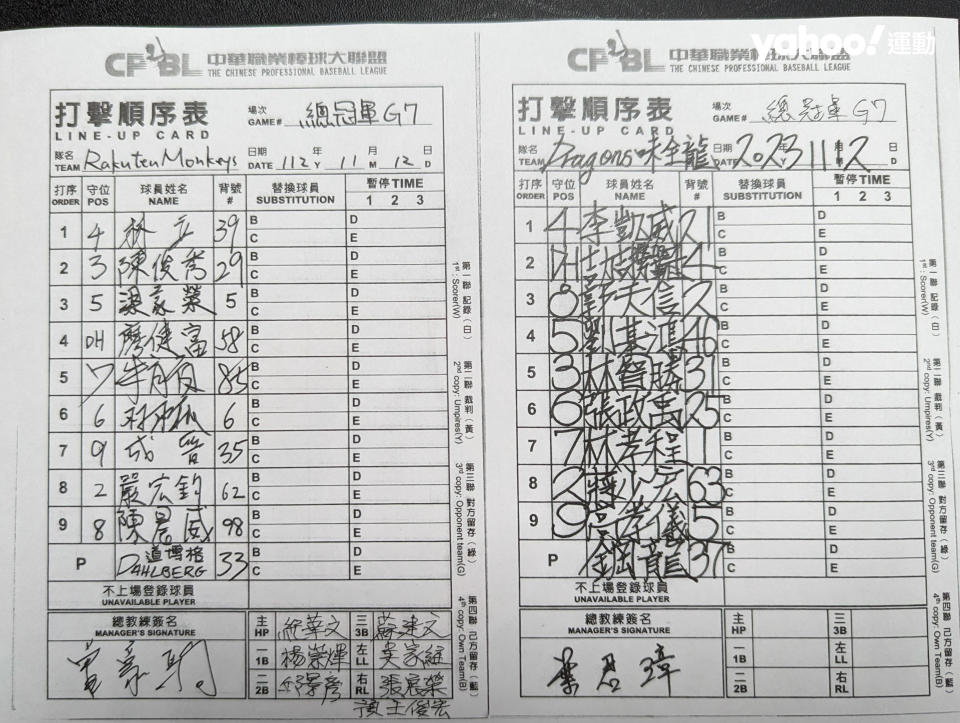 CPBL 中華職業棒球大聯盟
THE CHINESE PROFESSIONAL BASEBALL LEAGUE
打擊順序表
LINE-UP CARD
場次 GAME# 總冠軍 G7
隊名 TEAM Rakuten Monkeys 日期 DATE 112 年 Y 11 月 M 12 日 D
打序 ORDER 守位 POS 球員姓名 NAME 背號 # 替換球員 SUBSTITUTION 暫停 TIME 1 2 3
1 4 林立 39 B C D E
2 3 陳俊秀 29 B C D E
3 5 梁家榮 5 B C D E
4 DH 廖健富 58 B C D E
5 7 朱育賢 85 B C D E
6 6 林承飛 6 B C D E
7 9 成晉 35 B C D E
8 2 嚴宏鈞 62 B C D E
9 8 陳晨威 98 B C D E
P 道博格 DAHLBERG 33 B C D E
不上場登錄球員
UNAVAILABLE PLAYER
總教練簽名
MANAGER'S SIGNATURE
曾豪駒
主 HP 紀華文 三 3B 蘇建文
一 1B 楊崇煇 左 LL 吳家維
二 2B 邱景彥 右 RL 張展榮
預 王俊宏
第一聯 記錄(白)
1st : Scorer(W)
第二聯 裁判(黃)
2nd copy: Umpires(Y)
第三聯 對方留存(綠)
3rd copy: Opponent team(G)
第四聯 己方留存(藍)
4th copy: Own Team(B)
yahoo!運動
CPBL 中華職業棒球大聯盟
THE CHINESE PROFESSIONAL BASEBALL LEAGUE
打擊順序表
LINE-UP CARD
場次 GAME# 總冠軍 G7
隊名 TEAM Dragons 味全龍 日期 DATE 2023 11 12 D
打序 ORDER 守位 POS 球員姓名 NAME 背號 # 替換球員 SUBSTITUTION 暫停 TIME 1 2 3
1 4 李凱威 B C D E
2 DH 4 B C D E
3 8 郭天信 2 B C D E
4 5 劉基鴻 46 B C D E
5 3 林智勝 31 B C D E
6 6 張政禹 25 B C D E
7 7 林孝程 1 B C D E
8 2 蔣少宏 63 B C D E
9 9 孝儀 5 B C D E
P 鋼龍 37 B C D E
不上場登錄球員
UNAVAILABLE PLAYER
總教練簽名
MANAGER'S SIGNATURE
葉君璋
主 HP 三 3B
一 1B 左 LL
二 2B 右 RL
第一聯 記錄(白)
1st : Scorer(W)
第二聯 裁判(黃)
2nd copy: Umpires(Y)
第三聯 對方留存(綠)
3rd copy: Opponent team(G)
第四聯 己方留存(藍)
4th copy: Own Team(B)